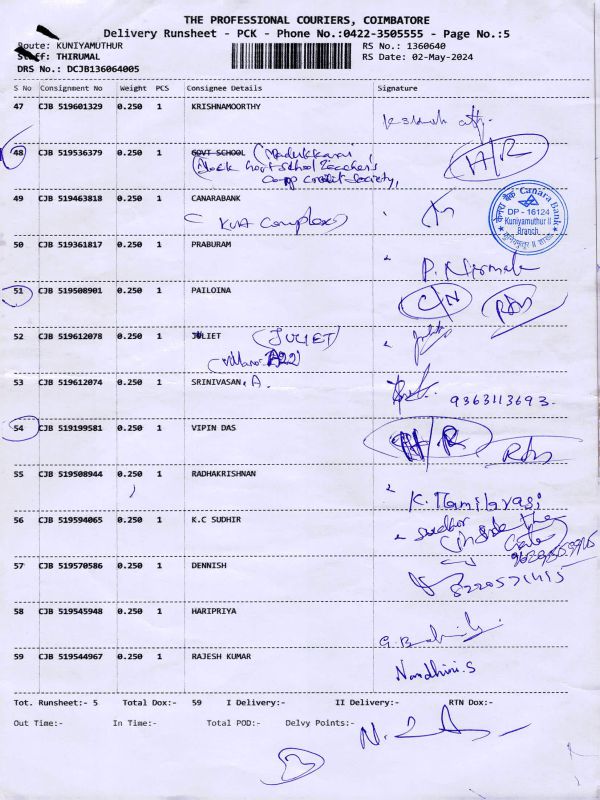 THE PROFESSIONAL COURIERS, COIMBATORE
Delivery Runsheet - PCK - Phone No.:0422-3505555 - Page No.:5
Route: KUNIYAMUTHUR RS No.: 1360640
Staff: THIRUMAL RS Date: 02-May-2024
DRS No.: DCJB136064005
S No Consignment No Weight PCS Consignee Details Signature
47 CJB 519601329 0.250 1 KRISHNAMOORTHY
48 CJB 519536379 0.250 1 GOVT SCHOOL (Madukkarai H/R
Block Govt School Teacher's
Co-op Credit Society,
49 CJB 519463818 0.250 1 CANARABANK
(KUA Complex)
केनरा बैंक Canara Bank
DP - 16124
Kuniyamuthur II
Branch
50 CJB 519361817 0.250 1 PRABURAM
P. Nirmala
51 CJB 519508901 0.250 1 PAILOINA C/N
52 CJB 519612078 0.250 1 JULIET (JULIET)
A22
53 CJB 519612074 0.250 1 SRINIVASAN. A.
9363113693.
54 CJB 519199581 0.250 1 VIPIN DAS H/R
55 CJB 519508944 0.250 1 RADHAKRISHNAN
K. Tamilarasi
56 CJB 519594065 0.250 1 K.C SUDHIR
(inside the
Gate)
57 CJB 519570586 0.250 1 DENNISH
58 CJB 519545948 0.250 1 HARIPRIYA
59 CJB 519544967 0.250 1 RAJESH KUMAR
Nandhini.S
Tot. Runsheet:- 5 Total Dox:- 59 I Delivery:- II Delivery:- RTN Dox:-
Out Time:- In Time:- Total POD:- Delvy Points:-